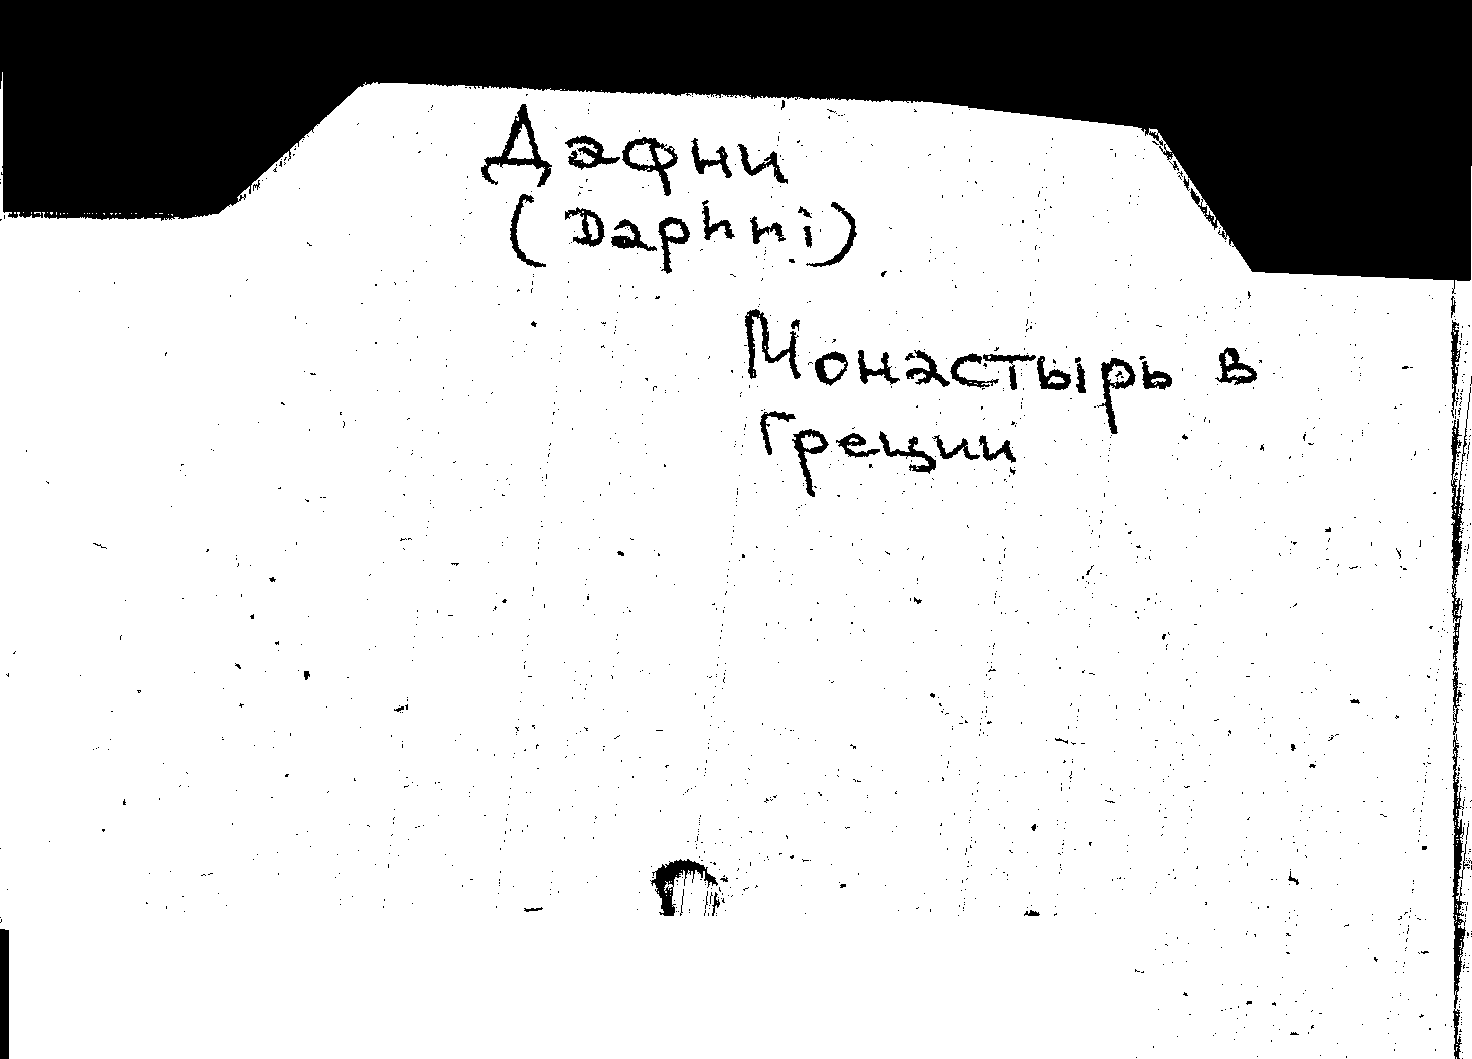 Дафни
(Daphni)
Монастырь в
Греции